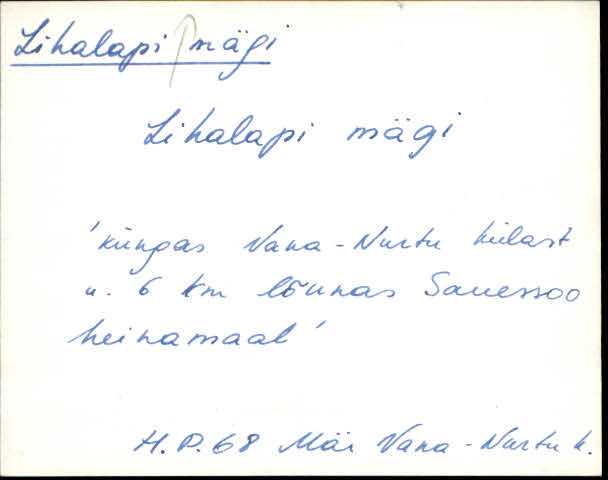 Lihalapi mägi
Lihalapi mägi
'küngas Vana-Nurtu külast
u. 6 km lõunas Sauessoo
heinamaal'
H.P.68 Mär Vana-Nurtu k.